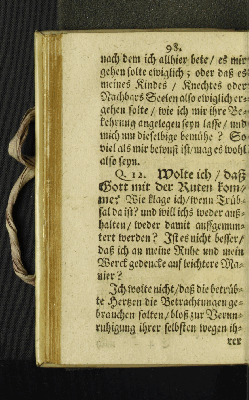 98.
nach dem ich allhier bete / es mir
gehen solte ewiglich ; oder daß es
meines Kindes / Knechtes oder
Nachbars Seelen also ewiglich er-
gehen solte / wie ich mir ihre Be-
kehrung angelegen seyn lasse / und
mich um dieselbige bemühe ? So
viel als mir bewust ist / mag es wohl
also seyn.
Q. 12. Wolte ich / daß
Gott mit der Ruten kom-
me? Wie klage ich / wenn Trüb-
sal da ist? und will ichs weder auß-
halten / weder damit aufgemun-
tert werden ? Ist es nicht besser /
daß ich an meine Ruhe und mein
Werck gedencke auf leichtere Ma-
nier ?
Ich wolte nicht / daß die betrüb-
te Hertzen die Betrachtungen ge-
brauchen solten / bloß zur Beun-
ruhigung ihrer selbsten wegen ih-
rer